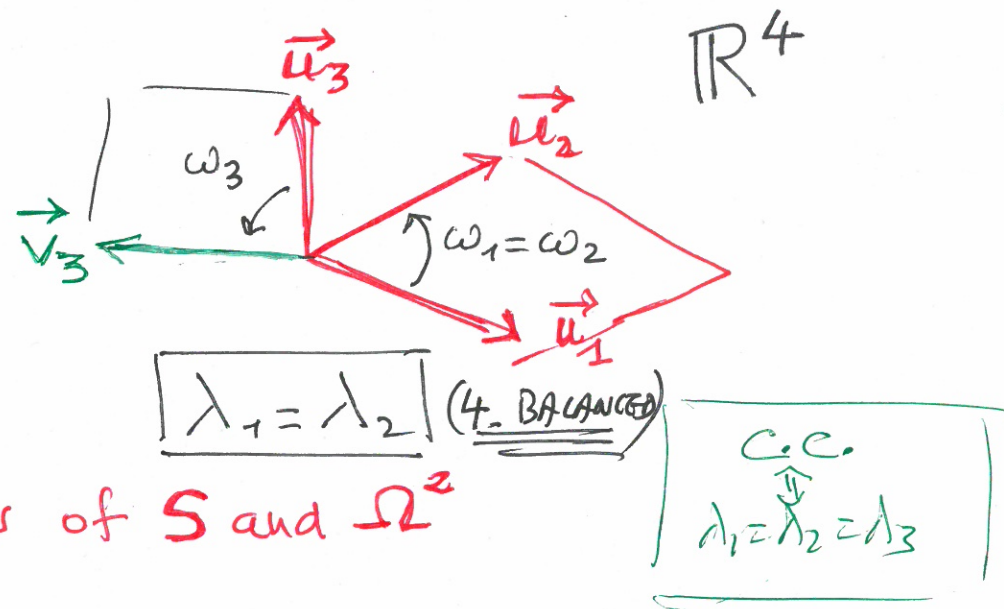 ℝ⁴
u⃗₃
u⃗₂
ω₃
ω₁=ω₂
v⃗₃
u⃗₁
λ₁=λ₂ (4_BALANCED)
C.C.
⇕
λ₁=λ₂=λ₃
s of S and Ω²